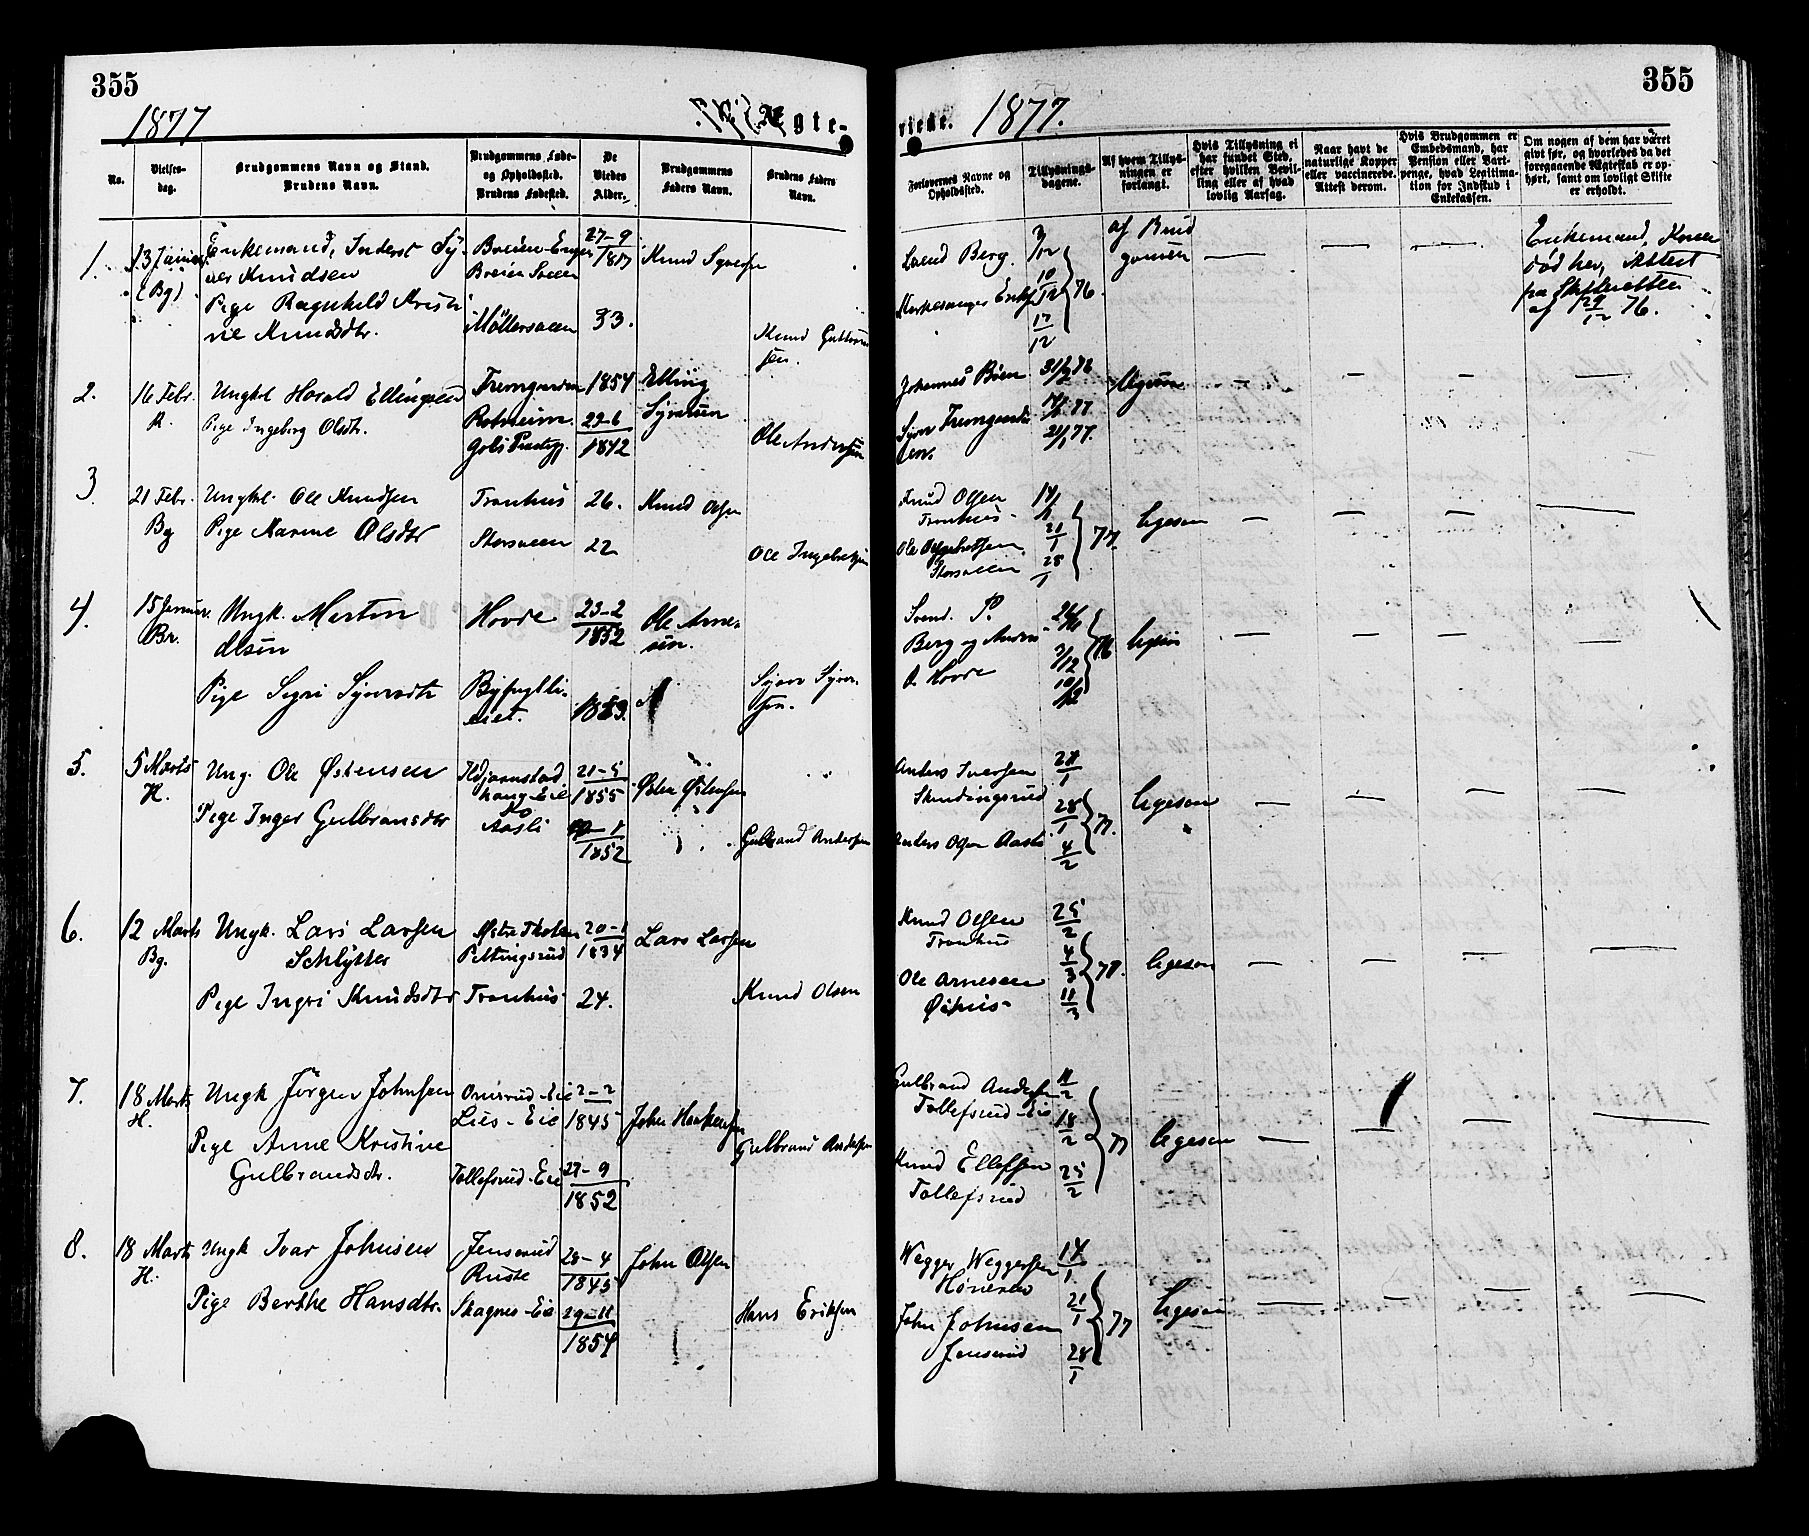 355
1877
Ægte-
No.
Vielses-
dag.
Brudgommens Navn og Stand.
Brudens Navn.
Brudgommens Føde-
og Opholdssted.
Brudens Fødested.
De
Viedes
Alder.
Brudgommens
Faders Navn.
Brudens Faders
Navn.
1.
13 Januar
(Bg)
Enkemand, Inderst Sy-
ver Knudsen
Pige Ragnhild Kristi
ne Knudsdtr.
Breien-Enger
Breien
27-9
1817
33.
Knud Syversen
Knud Guttorm
sen.
2.
16 Febr.
R.
Ungkl Harald Ellingsen
Pige Ingeborg Olsdtr.
1854
29-6
1842
Elling
Syversen
Ole Andersen
3
21 Febr.
Bg
Ungkl. Ole Knudsen
Pige Marine Olsdtr
Tronhus
Storsveen
26.
22
Knud Olsen
Ole Ingebretsen
4.
15 Januar.
Br.
Ungk. Martin
Olsen
Pige Sigri Syversdtr
Hovde
Byfuglli-
eiet.
23-2
1852
1853.
Ole Arne-
sen.
Syver Syver-
sen.
5.
5 Marts
H.
Ung. Ole Østensen
Pige Inger Gulbransdtr
haug-Eie
Aasli
21-5
1855
1852
Østen Østensen
Gulbrand Andersen
6.
12 Marts
Bg.
Ungk. Lars Larsen
Schlytter
Pige Ingri Knudsdtr
Pettingsrud
Tronhus
20-1
1834
24.
Lars Larsen
Knud Olsen
7.
18 Marts
H.
Ungk Jörgen Johnsen
Pige Anne Kristine
Gulbrandsdtr.
Omsrud-Eie
Lies-Eie
Tollefsrud-Eie
2-2
1845
27-9
1852
John Haakensen
Gulbrand Andersen
8.
18 Marts
H.
Ungk Ivar Johnsen
Pige Berthe Hansdtr.
Jensvud
Ruste
Skagnes-Eie
28-4
1845
29-11
1854
John Olsen
Hans Eriksen
355
viede. 1877.
Forlovernes Navne og
Opholdssted.
Tillysnings-
dagene.
Af hvem Tillys-
ningen er
forlangt.
Hvis Tillysning ei
har fundet Sted,
efter hvilken Bevil-
ling eller af hvad
lovlig Aarsag.
Naar havt de
naturlige Kopper
eller vaccinerede.
Attest derom.
Hvis Brudgommen er
Embedsmand, har
Pension eller Vart-
penge, hvad Legitima-
tion for Indskud i
Enkekassen.
Om nogen af dem har været
givt før, og hvorledes da det
foregaaende Ægteskab er op-
hørt, samt om lovligt Skifte
er erholdt.
Svend Berg.
3/12
10/12
17/12
76
af Brud
gommen
Enkemand, Konen
død her, Attest
fra Skifteretten
af 29/12 76.
Johannes Böen
Syver
sen.
31/12 76
21/1 77.
ligesom
Knud Olsen
Tronhus-
Ole
Storsveen
14/1
21/1
28/1
77.
ligesom
Svend. P.
Berg og Andrs
O. Hovde
26/11
3/12
10/12
76
ligesom
Anders Iversen
Skindingsrud
Anders Olsen Aasli
21/1
28/1
4/2
77.
ligesom
Knud Olsen
Tronhus
Ole Arnesen
Öihus-
25/2
4/3
11/3
77.
ligesom
Gulbrand Andersen
Tollefsrud-Eie
Knud Ellefsen
Tollefsrud
11/2
18/2
25/2
77
ligesom
Wegger Weggersen
Höneren
John Johnsen
Jensvud
14/1
21/1
28/1
77
ligesom